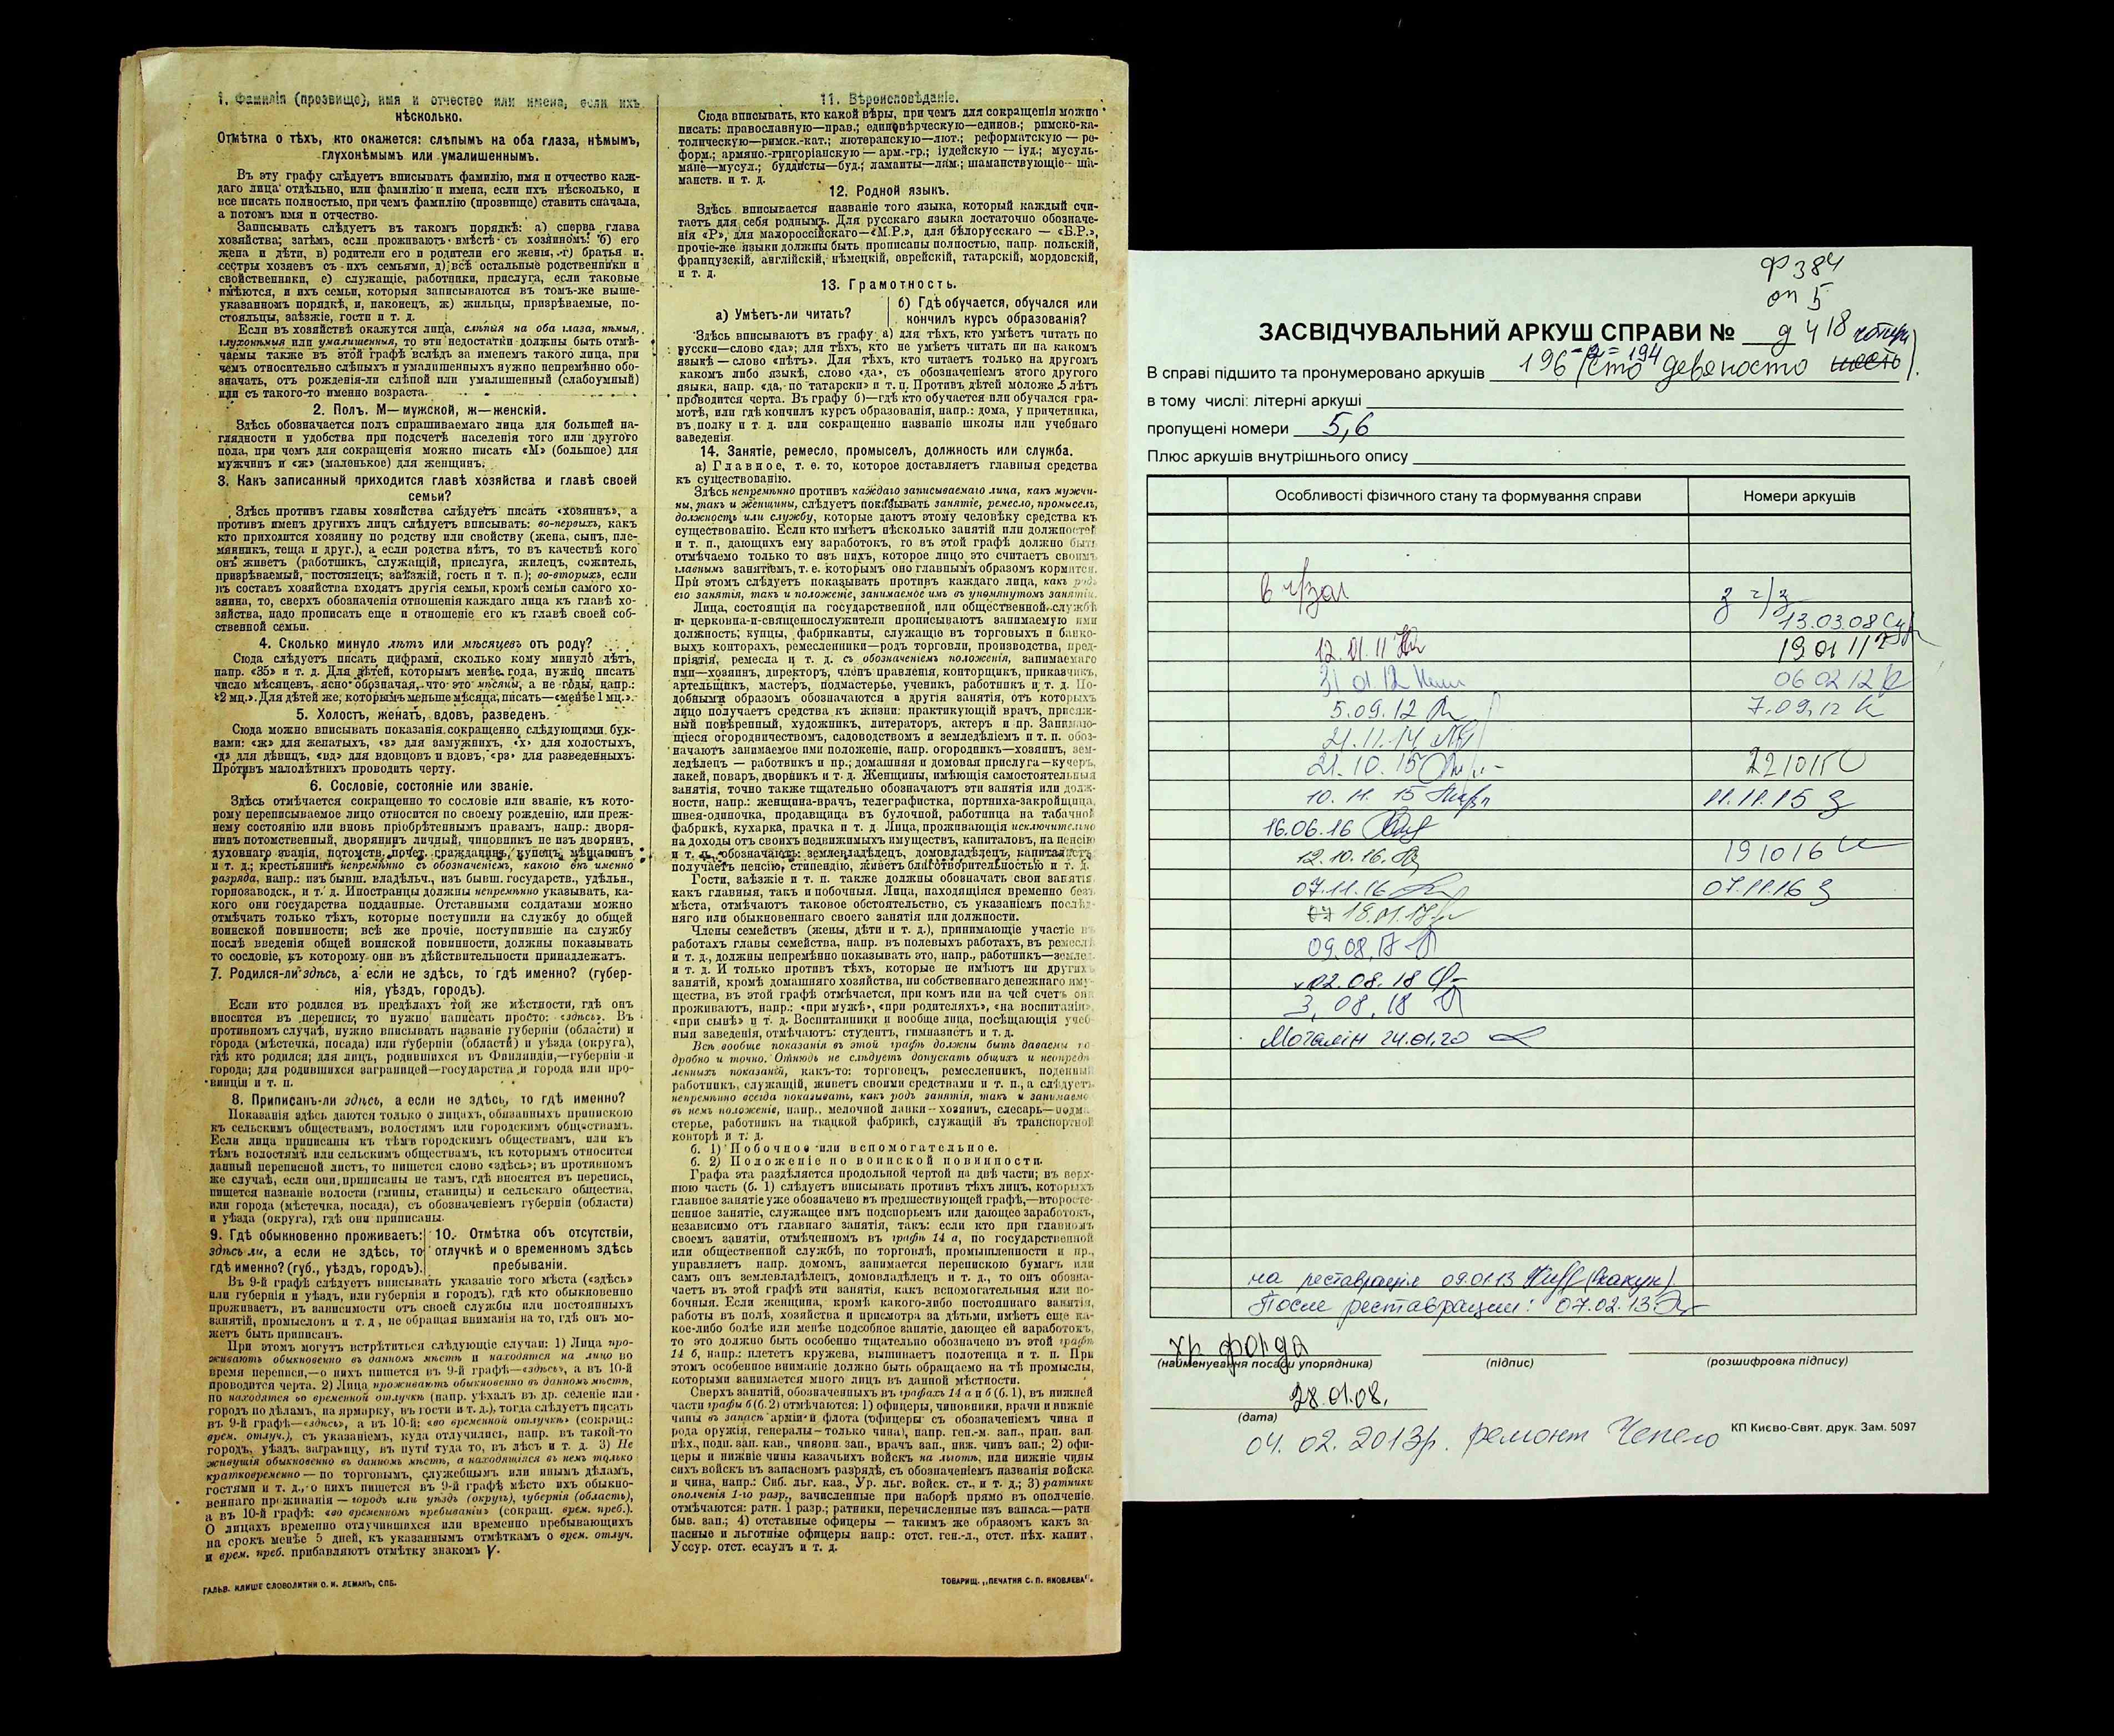 1. Фамилія (прозвище), имя и отчество или имена, если ихъ
нѣсколько.
Отмѣтка о тѣхъ, кто окажется: слѣпымъ на оба глаза, нѣмымъ,
глухонѣмымъ или умалишеннымъ.
Въ эту графу слѣдуетъ вписывать фамилію, имя и отчество каж-
даго лица отдѣльно, или фамилію и имена, если ихъ нѣсколько, и
все писать полностью, при чемъ фамилію (прозвище) ставить сначала,
а потомъ имя и отчество.
Записывать слѣдуетъ въ такомъ порядкѣ: а) сперва глава
хозяйства; затѣмъ, если проживаютъ вмѣстѣ съ хозяиномъ: б) его
жена и дѣти, в) родители его и родители его жены, г) братья и
сестры хозяевъ съ ихъ семьями, д) всѣ остальные родственники и
свойственники, е) служащіе, работники, прислуга, если таковые
имѣются, и ихъ семьи, которыя записываются въ томъ-же выше-
указанномъ порядкѣ, и, наконецъ, ж) жильцы, призрѣваемые, по-
стояльцы, заѣзжіе, гости и т. д.
Если въ хозяйствѣ окажутся лица, слѣпыя на оба глаза, нѣмыя,
глухонѣмыя или умалишенныя, то эти недостатки должны быть отмѣ-
чаемы также въ этой графѣ вслѣдъ за именемъ такого лица, при
чемъ относительно слѣпыхъ и умалишенныхъ нужно непремѣнно обо-
значать, отъ рожденія-ли слѣпой или умалишенный (слабоумный)
или съ такого-то именно возраста.
2. Полъ. М—мужской, ж—женскій.
Здѣсь обозначается полъ спрашиваемаго лица для большей на-
глядности и удобства при подсчетѣ населенія того или другого
пола, при чемъ для сокращенія можно писать «М» (большое) для
мужчинъ и «ж» (маленькое) для женщинъ.
3. Какъ записанный приходится главѣ хозяйства и главѣ своей
семьи?
Здѣсь противъ главы хозяйства слѣдуетъ писать «хозяинъ», а
противъ именъ другихъ лицъ слѣдуетъ вписывать: во-первыхъ, какъ
кто приходится хозяину по родству или свойству (жена, сынъ, пле-
мянникъ, теща и друг.), а если родства нѣтъ, то въ качествѣ кого
онъ живетъ (работникъ, служащій, прислуга, жилецъ, сожитель,
призрѣваемый, постоялецъ; заѣзжій, гость и т. п.); во-вторыхъ, если
въ составъ хозяйства входятъ другія семьи, кромѣ семьи самого хо-
зяина, то, сверхъ обозначенія отношенія каждаго лица къ главѣ хо-
зяйства, надо прописать еще и отношеніе его къ главѣ своей соб-
ственной семьи.
4. Сколько минуло лѣтъ или мѣсяцевъ отъ роду?
Сюда слѣдуетъ писать цифрами, сколько кому минуло лѣтъ,
напр. «35» и т. д. Для дѣтей, которымъ менѣе года, нужно писать
число мѣсяцевъ, ясно обозначая, что это мѣсяцы, а не годы, напр.:
«2 мц.». Для дѣтей же, которымъ меньше мѣсяца, писать—«менѣе 1 мц.».
5. Холостъ, женатъ, вдовъ, разведенъ.
Сюда можно вписывать показанія сокращенно слѣдующими бук-
вами: «ж» для женатыхъ, «з» для замужнихъ, «х» для холостыхъ,
«д» для дѣвицъ, «вд» для вдовцовъ и вдовъ, «рз» для разведенныхъ.
Противъ малолѣтнихъ проводить черту.
6. Сословіе, состояніе или званіе.
Здѣсь отмѣчается сокращенно то сословіе или званіе, къ кото-
рому переписываемое лицо относится по своему рожденію, или преж-
нему состоянію или вновь пріобрѣтеннымъ правамъ, напр.: дворя-
нинъ потомственный, дворянинъ личный, чиновникъ не изъ дворянъ,
духовнаго званія, потомств. почет. гражданинъ, купецъ, мѣщанинъ
и т. д.; крестьянинъ непремѣнно съ обозначеніемъ, какого онъ именно
разряда, напр.: изъ бывш. владѣльч., изъ бывш. государств., удѣльн.,
горнозаводск., и т. д. Иностранцы должны непремѣнно указывать, ка-
кого они государства подданные. Отставными солдатами можно
отмѣчать только тѣхъ, которые поступили на службу до общей
воинской повинности; всѣ же прочіе, поступившіе на службу
послѣ введенія общей воинской повинности, должны показывать
то сословіе, къ которому они въ дѣйствительности принадлежатъ.
7. Родился-ли здѣсь, а если не здѣсь, то гдѣ именно? (губер-
нія, уѣздъ, городъ).
Если кто родился въ предѣлахъ той же мѣстности, гдѣ онъ
вносится въ перепись, то нужно написать просто: «здѣсь». Въ
противномъ случаѣ, нужно вписывать названіе губерніи (области) и
города (мѣстечка, посада) или губерніи (области) и уѣзда (округа),
гдѣ кто родился; для лицъ, родившихся въ Финляндіи,—губерніи и
города; для родившихся заграницей—государства и города или про-
винціи и т. п.
8. Приписанъ-ли здѣсь, а если не здѣсь, то гдѣ именно?
Показанія здѣсь даются только о лицахъ, обязанныхъ припискою
къ сельскимъ обществамъ, волостямъ или городскимъ обществамъ.
Если лица приписаны къ тѣмъ городскимъ обществамъ, или къ
тѣмъ волостямъ или сельскимъ обществамъ, къ которымъ относится
данный переписной листъ, то пишется слово «здѣсь»; въ противномъ
же случаѣ, если они приписаны не тамъ, гдѣ вносятся въ перепись,
пишется названіе волости (гмины, станицы) и сельскаго общества,
или города (мѣстечка, посада), съ обозначеніемъ губерніи (области)
и уѣзда (округа), гдѣ они приписаны.
9. Гдѣ обыкновенно проживаетъ:
здѣсь-ли, а если не здѣсь, то
гдѣ именно? (губ., уѣздъ, городъ).
10. Отмѣтка объ отсутствіи,
отлучкѣ и о временномъ здѣсь
пребываніи.
Въ 9-й графѣ слѣдуетъ вписывать указаніе того мѣста («здѣсь»
или губернія и уѣздъ, или губернія и городъ), гдѣ кто обыкновенно
проживаетъ, въ зависимости отъ своей службы или постоянныхъ
занятій, промысловъ и т. д., не обращая вниманія на то, гдѣ онъ мо-
жетъ быть приписанъ.
При этомъ могутъ встрѣтиться слѣдующіе случаи: 1) Лица про-
живаютъ обыкновенно въ данномъ мѣстѣ и находятся на лицо во
время переписи,—о нихъ пишется въ 9-й графѣ—«здѣсь», а въ 10-й
проводится черта. 2) Лица проживаютъ обыкновенно въ данномъ мѣстѣ,
но находятся во временной отлучкѣ (напр. уѣхалъ въ др. селеніе или
городъ по дѣламъ, на ярмарку, въ гости и т. д.), тогда слѣдуетъ писать
въ 9-й графѣ—«здѣсь», а въ 10-й: «во временной отлучкѣ» (сокращ.:
врем. отлуч.), съ указаніемъ, куда отлучились, напр. въ такой-то
городъ, уѣздъ, заграницу, въ пути туда то, въ лѣсъ и т. д. 3) Не
живущія обыкновенно въ данномъ мѣстѣ, а находящіяся въ немъ только
кратковременно — по торговымъ, служебнымъ или инымъ дѣламъ,
гостями и т. д., о нихъ пишется въ 9-й графѣ мѣсто ихъ обыкно-
веннаго проживанія — городъ или уѣздъ (округъ), губернія (область),
а въ 10-й графѣ: «во временномъ пребываніи» (сокращ. врем. преб.).
О лицахъ временно отлучившихся или временно пребывающихъ
на срокъ менѣе 5 дней, къ указаннымъ отмѣткамъ о врем. отлуч.
и врем. преб. прибавляютъ отмѣтку знакомъ V.
ГАЛЬВ. КЛИШЕ СЛОВОЛИТНИ О. И. ЛЕМАНЪ, СПБ.
11. Вѣроисповѣданіе.
Сюда вписывать, кто какой вѣры, при чемъ для сокращенія можно
писать: православную—прав.; единовѣрческую—единов.; римско-ка-
толическую—римск.-кат.; лютеранскую—лют.; реформатскую — ре-
форм.; армяно.-григоріанскую — арм.-гр.; іудейскую — іуд.; мусуль-
мане—мусул.; буддисты—буд.; ламаиты—лам.; шаманствующіе—ша-
манств. и т. д.
12. Родной языкъ.
Здѣсь вписывается названіе того языка, который каждый счи-
таетъ для себя роднымъ. Для русскаго языка достаточно обозначе-
нія «Р», для малороссійскаго—«М.Р.», для бѣлорусскаго — «Б.Р.»,
прочіе-же языки должны быть прописаны полностью, напр. польскій,
французскій, англійскій, нѣмецкій, еврейскій, татарскій, мордовскій,
и т. д.
13. Грамотность.
а) Умѣетъ-ли читать?
б) Гдѣ обучается, обучался или
кончилъ курсъ образованія?
Здѣсь вписываютъ въ графу: а) для тѣхъ, кто умѣетъ читать по
русски—слово «да»; для тѣхъ, кто не умѣетъ читать ни на какомъ
языкѣ — слово «нѣтъ». Для тѣхъ, кто читаетъ только на другомъ
какомъ либо языкѣ, слово «да», съ обозначеніемъ этого другого
языка, напр. «да, по татарски» и т. п. Противъ дѣтей моложе 5 лѣтъ
проводится черта. Въ графу б)—гдѣ кто обучается или обучался гра-
мотѣ, или гдѣ кончилъ курсъ образованія, напр.: дома, у причетника,
въ полку и т. д. или сокращенно названіе школы или учебнаго
заведенія.
14. Занятіе, ремесло, промыселъ, должность или служба.
а) Главное, т. е. то, которое доставляетъ главныя средства
къ существованію.
Здѣсь непремѣнно противъ каждаго записываемаго лица, какъ мужчи-
ны, такъ и женщины, слѣдуетъ показывать занятіе, ремесло, промыселъ,
должность или службу, которые даютъ этому человѣку средства къ
существованію. Если кто имѣетъ нѣсколько занятій или должностей
и т. п., дающихъ ему заработокъ, то въ этой графѣ должно быть
отмѣчаемо только то изъ нихъ, которое лицо это считаетъ своимъ
главнымъ занятіемъ, т. е. которымъ оно главнымъ образомъ кормится.
При этомъ слѣдуетъ показывать противъ каждаго лица, какъ родъ
его занятія, такъ и положеніе, занимаемое имъ въ упомянутомъ занятіи.
Лица, состоящія на государственной или общественной службѣ
и церковно-и-священнослужители прописываютъ занимаемую ими
должность; купцы, фабриканты, служащіе въ торговыхъ и банко-
выхъ конторахъ, ремесленники—родъ торговли, производства, пред-
пріятія, ремесла и т. д. съ обозначеніемъ положенія, занимаемаго
ими—хозяинъ, директоръ, членъ правленія, конторщикъ, приказчикъ,
артельщикъ, мастеръ, подмастерье, ученикъ, работникъ и т. д. По-
добнымъ образомъ обозначаются и другія занятія, отъ которыхъ
лицо получаетъ средства къ жизни: практикующій врачъ, присяж-
ный повѣренный, художникъ, литераторъ, актеръ и пр. Занимаю-
щіеся огородничествомъ, садоводствомъ и земледѣліемъ и т. п. обоз-
начаютъ занимаемое ими положеніе, напр. огородникъ—хозяинъ, зем-
ледѣлецъ — работникъ и пр.; домашняя и домовая прислуга—кучеръ,
лакей, поваръ, дворникъ и т. д. Женщины, имѣющія самостоятельныя
занятія, точно также тщательно обозначаютъ эти занятія или долж-
ности, напр.: женщина-врачъ, телеграфистка, портниха-закройщица,
швея-одиночка, продавщица въ булочной, работница на табачной
фабрикѣ, кухарка, прачка и т. д. Лица, проживающія исключительно
на доходы отъ своихъ недвижимыхъ имуществъ, капиталовъ, на пенсію
и т. п., обозначаютъ: землевладѣлецъ, домовладѣлецъ, капиталистъ,
получаетъ пенсію, стипендію, живетъ благотворительностью и т. д.
Гости, заѣзжіе и т. п. также должны обозначать свои занятія
какъ главныя, такъ и побочныя. Лица, находящіяся временно безъ
мѣста, отмѣчаютъ таковое обстоятельство, съ указаніемъ послѣд-
няго или обыкновеннаго своего занятія или должности.
Члены семействъ (жены, дѣти и т. д.), принимающіе участіе въ
работахъ главы семейства, напр. въ полевыхъ работахъ, въ ремеслѣ
и т. д., должны непремѣнно показывать это, напр., работникъ—землед.
и т. д. И только противъ тѣхъ, которые не имѣютъ ни другихъ
занятій, кромѣ домашняго хозяйства, ни собственнаго денежнаго иму-
щества, въ этой графѣ отмѣчается, при комъ или на чей счетъ они
проживаютъ, напр.: «при мужѣ», «при родителяхъ», «на воспитаніи»,
«при сынѣ» и т. д. Воспитанники и вообще лица, посѣщающія учеб-
ныя заведенія, отмѣчаютъ: студентъ, гимназистъ и т. д.
Всѣ вообще показанія въ этой графѣ должны быть даваемы по-
дробно и точно. Отнюдь не слѣдуетъ допускать общихъ и неопредѣ-
ленныхъ показаній, какъ-то: торговецъ, ремесленникъ, поденный
работникъ, служащій, живетъ своими средствами и т. п., а слѣдуетъ
непремѣнно всегда показывать, какъ родъ занятія, такъ и занимаемое
въ немъ положеніе, напр., мелочной лавки—хозяинъ, слесарь—подма-
стерье, работникъ на ткацкой фабрикѣ, служащій въ транспортной
конторѣ и т. д.
б. 1) Побочное или вспомогательное.
б. 2) Положеніе по воинской повинности.
Графа эта раздѣляется продольной чертой на двѣ части; въ верх-
нюю часть (б. 1) слѣдуетъ вписывать противъ тѣхъ лицъ, которыхъ
главное занятіе уже обозначено въ предшествующей графѣ,—второсте-
пенное занятіе, служащее имъ подспорьемъ или дающее заработокъ,
независимо отъ главнаго занятія, такъ: если кто при главномъ
своемъ занятіи, отмѣченномъ въ графѣ 14 а, по государственной
или общественной службѣ, по торговлѣ, промышленности и пр.,
управляетъ напр. домомъ, занимается перепискою бумагъ или
самъ онъ землевладѣлецъ, домовладѣлецъ и т. д., то онъ обозна-
чаетъ въ этой графѣ эти занятія, какъ вспомогательныя или по-
бочныя. Если женщина, кромѣ какого-либо постояннаго занятія,
работы въ полѣ, хозяйства и присмотра за дѣтьми, имѣетъ еще ка-
кое-либо болѣе или менѣе подсобное занятіе, дающее ей заработокъ,
то это должно быть особенно тщательно обозначено въ этой графѣ
14 б, напр.: плететъ кружева, вышиваетъ полотенца и т. п. При
этомъ особенное вниманіе должно быть обращаемо на тѣ промыслы,
которыми занимается много лицъ въ данной мѣстности.
Сверхъ занятій, обозначенныхъ въ графахъ 14 а и б (б. 1), въ нижней
части графы б (б. 2) отмѣчаются: 1) офицеры, чиновники, врачи и нижніе
чины въ запасѣ арміи и флота (офицеры съ обозначеніемъ чина и
рода оружія, генералы—только чина), напр. ген.-м. зап., прап. зап.
пѣх., подп. зап. кав., чиновн. зап., врачъ зап., ниж. чинъ зап.; 2) офи-
церы и нижніе чины казачьихъ войскъ на льготѣ, или нижніе чины
сихъ войскъ въ запасномъ разрядѣ, съ обозначеніемъ названія войска
и чина, напр.: Сиб. льг. каз., Ур. льг. войск. ст., и т. д.; 3) ратники
ополченія 1-го разр., зачисленные при наборѣ прямо въ ополченіе,
отмѣчаются: ратн. 1 разр.; ратники, перечисленные изъ запаса.—ратн.
быв. зап.; 4) отставные офицеры — такимъ же образомъ какъ за-
пасные и льготные офицеры напр.: отст. ген.-л., отст. пѣх. капит.,
Уссур. отст. есаулъ и т. д.
ТОВАРИЩ. „ПЕЧАТНЯ С. П. ЯКОВЛЕВА".
Ф 384
оп 5
ЗАСВІДЧУВАЛЬНИЙ АРКУШ СПРАВИ № д 418
В справі підшито та пронумеровано аркушів 196 - 2 = 194 (сто девяносто шесть) четыре
в тому числі: літерні аркуші
пропущені номери 5,6
Плюс аркушів внутрішнього опису
Особливості фізичного стану та формування справи Номери аркушів
в ч/зал з ч/з
13.03.08
12.01.11 19 01 11
31 01.12 06 02 12
5.09.12 7.09.12
21.11.14
21.10.15 221015
10.11.15 11.11.15
16.06.16
12.10.16. 191016
07.11.16 07.11.16
18.01.17
09.08.17
02.08.18
3.08.18
24.01.20
на реставрацію 09.01.13
После реставрации: 07.02.13
хр фонда
(найменування посади упорядника) (підпис) (розшифровка підпису)
28.01.08.
(дата)
КП Києво-Свят. друк. Зам. 5097
04.02.2013р. ремонт